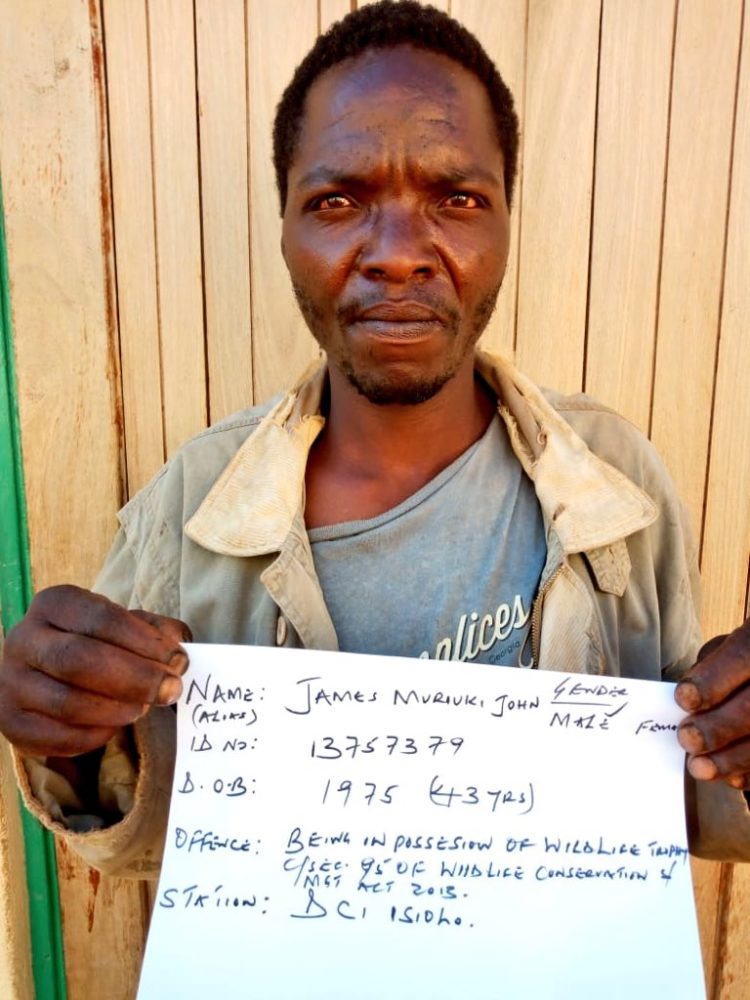 alices
Georgia
NAME: JAMES MURIUKI JOHN GENDER
(ALIAS) MALE FEMA
ID NO: 13757379
D.O.B: 1975 (43 YRS)
OFFENCE: BEING IN POSSESION OF WILDLIFE TROPHY
C/SEC. 95 OF WILDLIFE CONSERVATION &
MGT ACT 2013.
STATION: DCI ISIOLO.